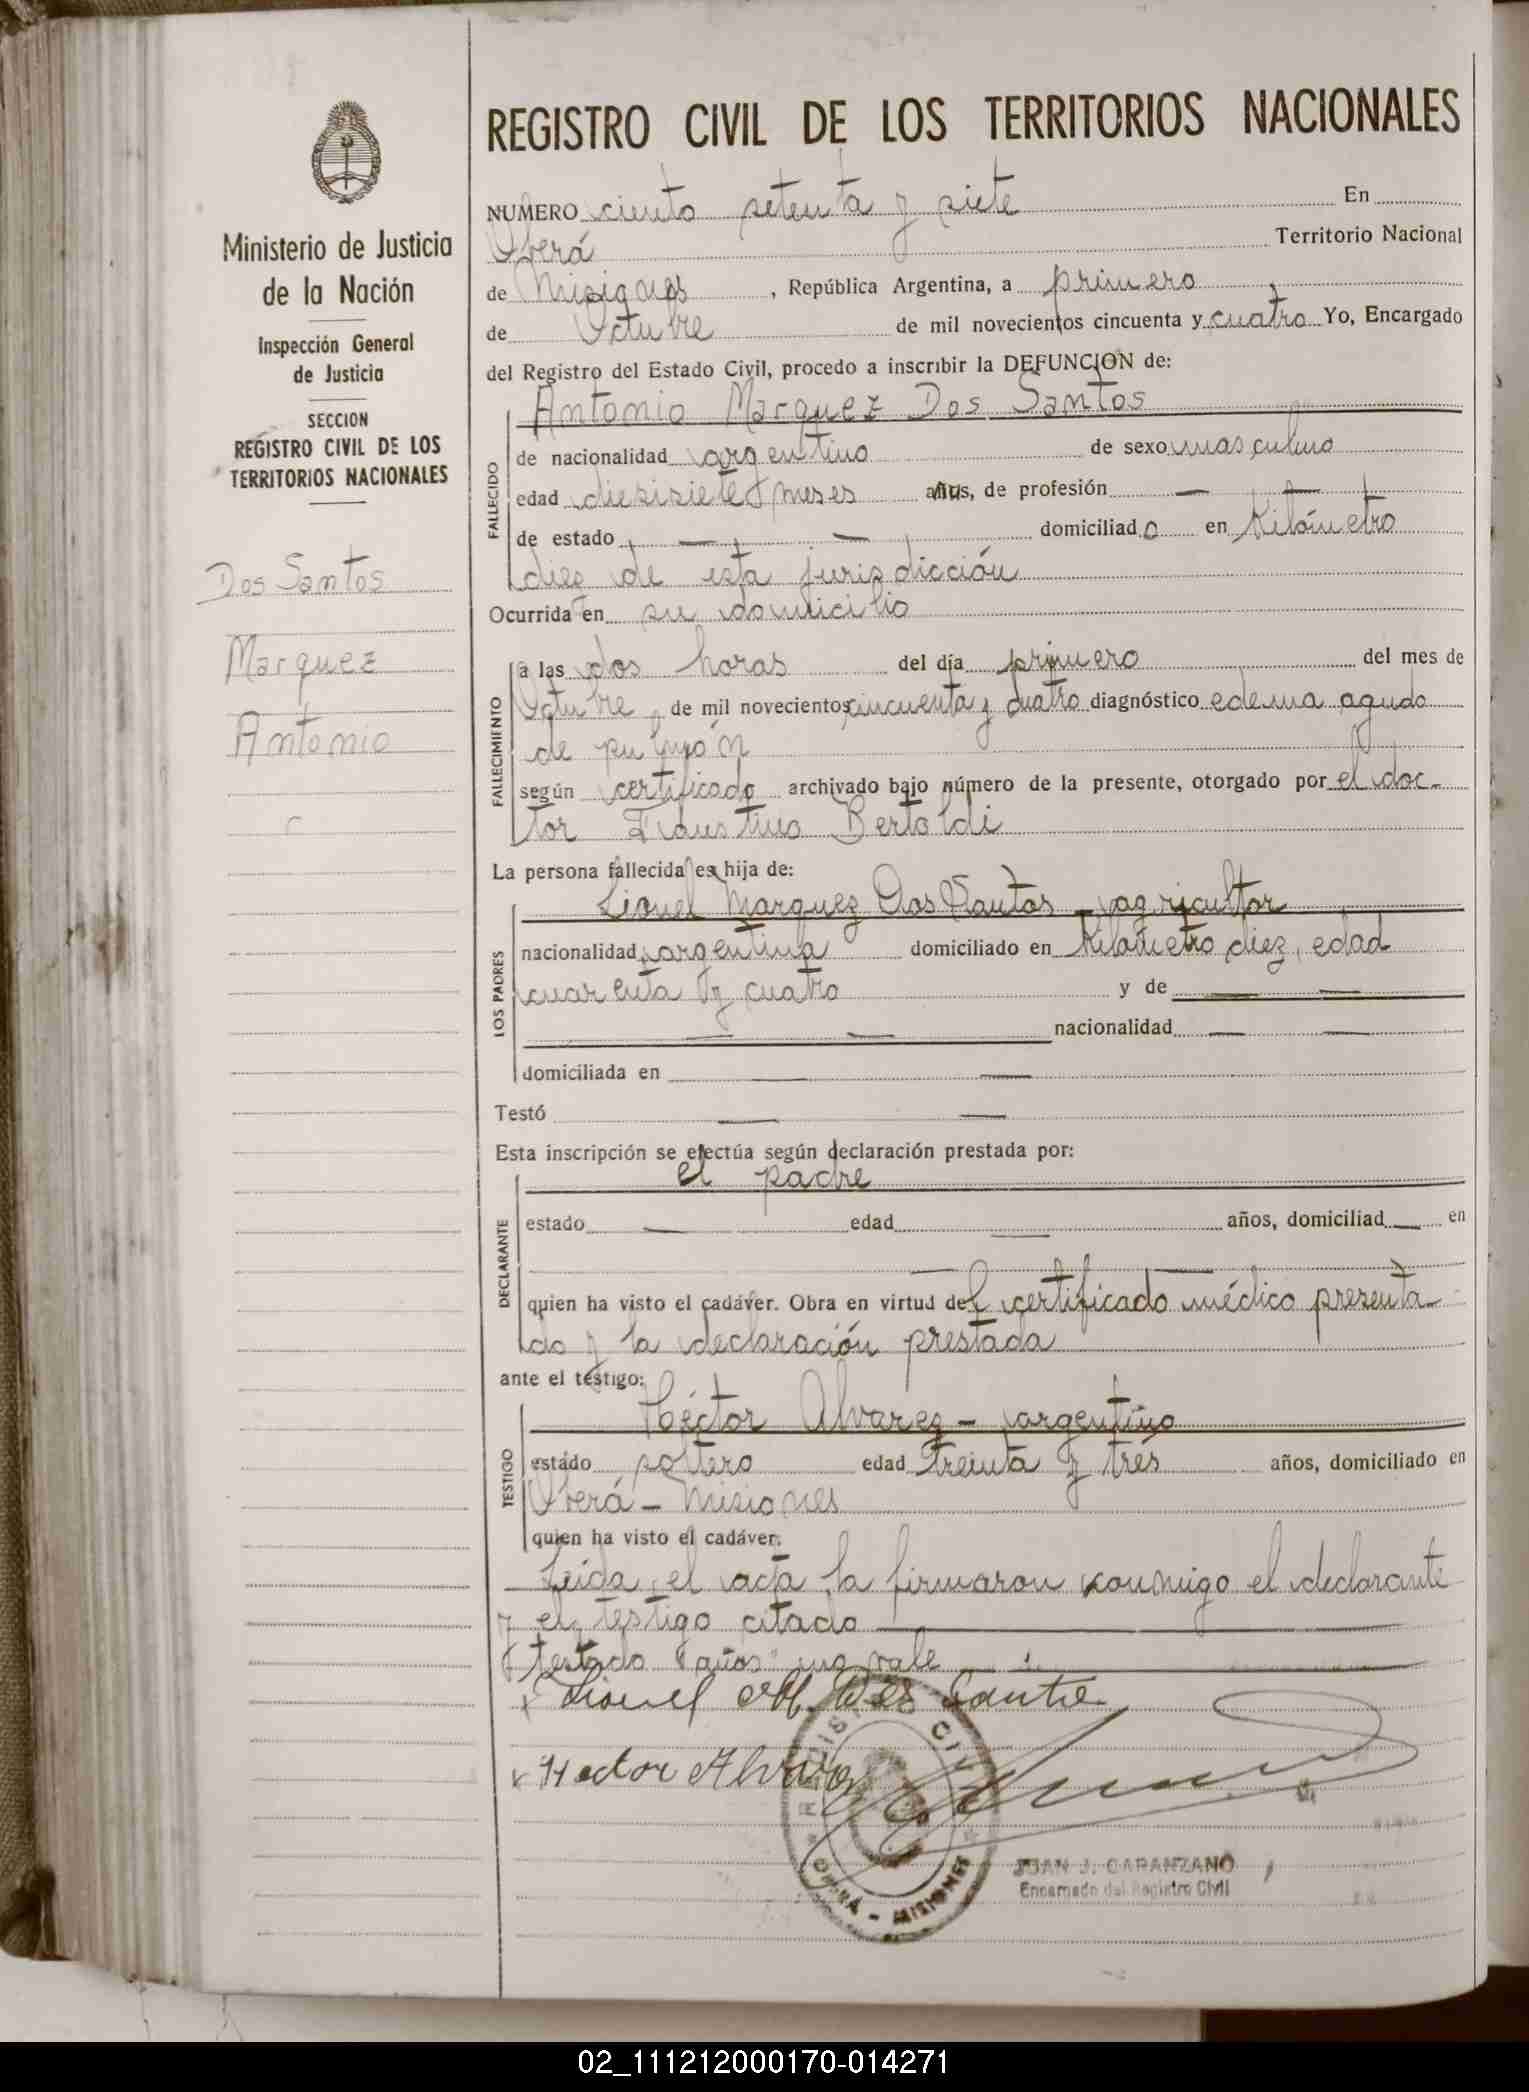 REGISTRO CIVIL DE LOS TERRITORIOS NACIONALES
Ministerio de Justicia
de la Nación
Inspección General
de Justicia
SECCION
REGISTRO CIVIL DE LOS
TERRITORIOS NACIONALES
Dos Santos
Marquez
Antonio
NUMERO ciento setenta y siete En
Oberá Territorio Nacional
de Misiones, República Argentina, a primero
de Octubre de mil novecientos cincuenta y cuatro Yo, Encargado
del Registro del Estado Civil, procedo a inscribir la DEFUNCION de:
FALLECIDO
Antonio Marquez Dos Santos
de nacionalidad argentino de sexo masculino
edad diezisiete meses años, de profesión — —
de estado — — domiciliado en Kilómetro
diez de esta jurisdicción
Ocurrida en su domicilio
FALLECIMIENTO
a las dos horas del día primero del mes de
Octubre de mil novecientos cincuenta y cuatro diagnóstico edema agudo
de pulmón
según certificado archivado bajo número de la presente, otorgado por el doc-
tor Faustino Bertoldi
La persona fallecida es hija de:
LOS PADRES
Lionel Marquez Dos Santos agricultor
nacionalidad argentina domiciliado en Kilometro diez, edad
cuarenta y cuatro y de — —
— — nacionalidad — —
domiciliada en — —
Testó — —
Esta inscripción se efectúa según declaración prestada por:
DECLARANTE
el padre
estado — edad — años, domiciliad — en
— —
quien ha visto el cadáver. Obra en virtud del certificado médico presenta-
do y la declaración prestada
ante el testigo:
TESTIGO
Héctor Alvarez - argentino
estado soltero edad treinta y tres años, domiciliado en
Oberá - Misiones
quien ha visto el cadáver.
Leida el acta la firmaron conmigo el declarante
y el testigo citado
testado "años" no vale
Lionel M. Dos Santos
Hector Alvarez
REGISTRO CIVIL
OBERÁ - MISIONES
JUAN J. CARANZANO
Encargado del Registro Civil
02_111212000170-014271